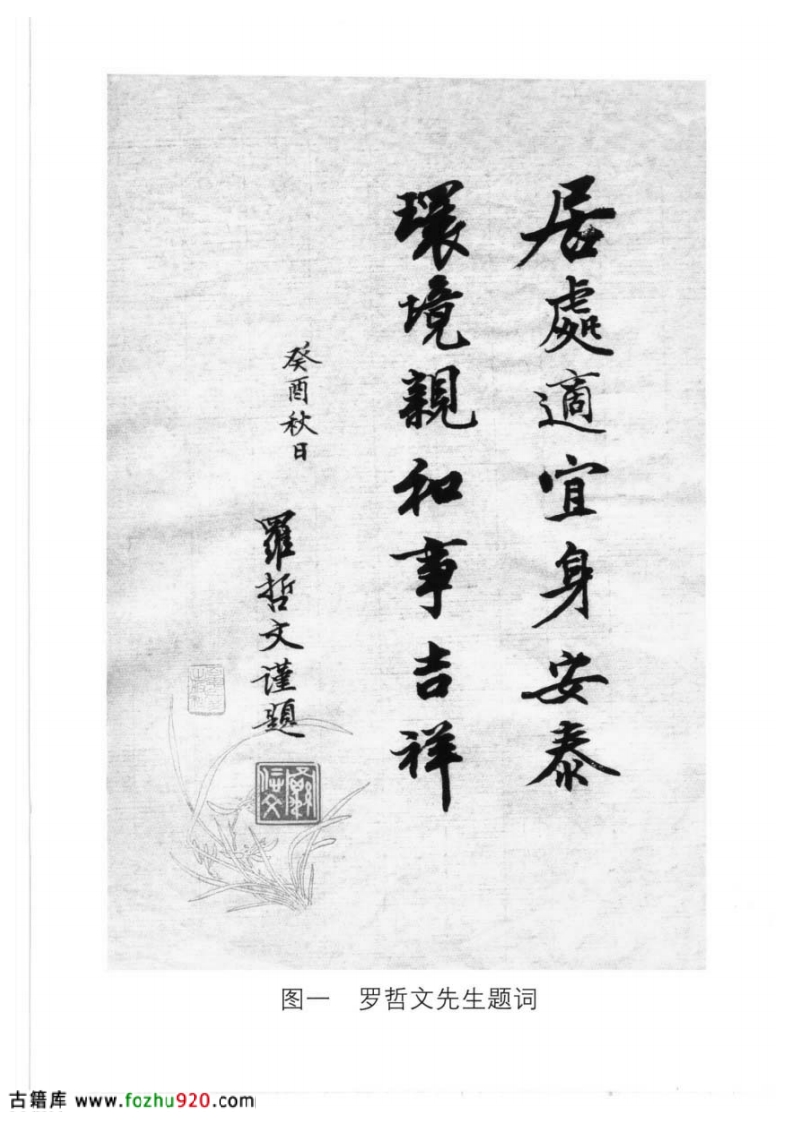 居處適宜身安泰
環境親和事吉祥
癸酉秋日
羅哲文謹題
图一 罗哲文先生题词
古籍库 www.fozhu920.com